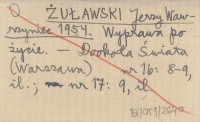 ŻUŁAWSKI Jerzy Waw-
rzyniec 1954. Wyprawa po
życie. – Dookoła Świata
(Warszawa) nr 16: 8-9,
il.; nr 17: 9, il